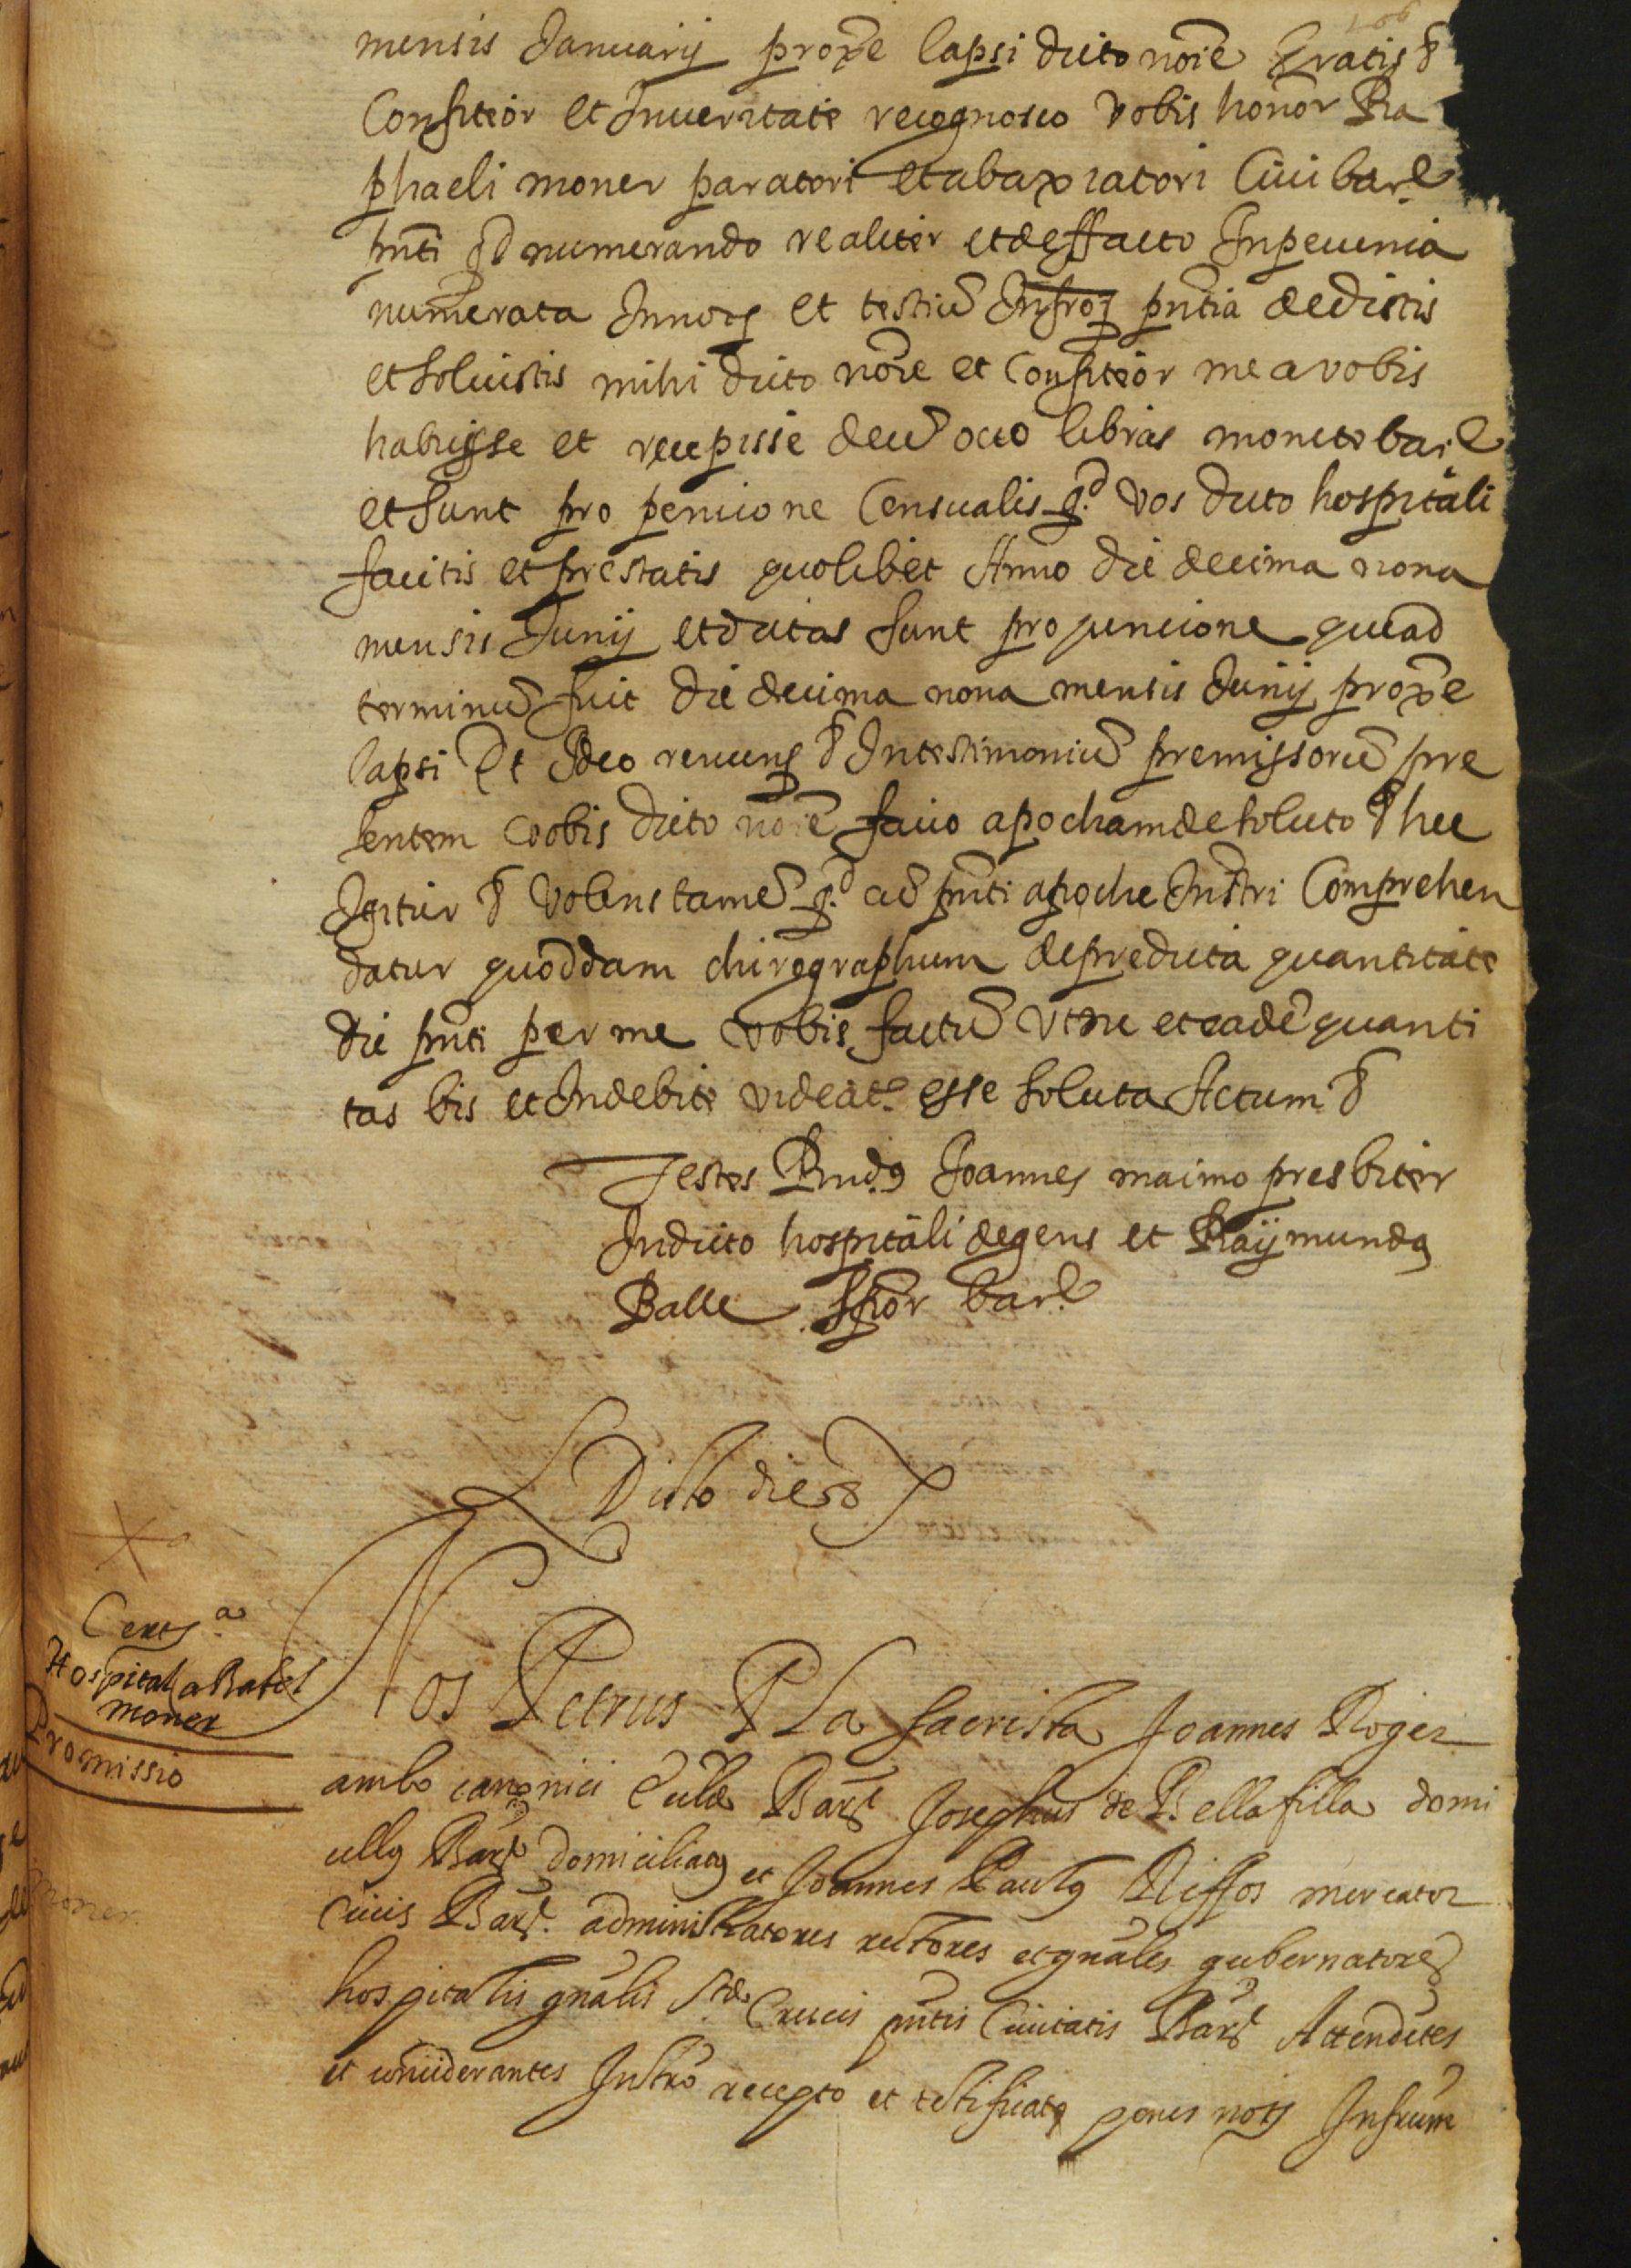 106
mensis Januarij prox̄e lapsi dicto noīe Gratis &
Confiteor et Inveritate recognosco vobis honōr Ra
phaeli moner paratori et abaxiatori Civi barc̄
pn̄ti qd numerando realiter et de ffacto Inpecunia
numerata Innorj et testiū Infrōr pn̄tia dedistis
et solvistis mihi dicto noīe et Confiteor me a vobis
habuisse et recepisse decē octo libras monete barc̄
et sunt pro pencione Censualis qd vos dicto hospitāli
facitis et prestatis quolibet Anno die decima nona
mensis Junij et dictas sunt pro pencione que ad
terminū fuit die decima nona mensis Junij prox̄e
lapsi Et Ideo renuns & Intestimoniū premissorū pre
sentem vobis dicto noīe facio apocham de soluto & hec
Igitur & volens tamē qd ad pn̄ti apoche Instri Comprehen
datur quoddam chirographum de predicta quantitate
die pn̄ti per me vobis factū et ne eadē quanti
tas bis et Indebite videatr esse soluta Actum &
Testes Rndus Joannes maimo presbiter
Indicto hospitāli degens et Raÿmundus
Balle barc̄
Dicto die &
Hospital a Rafel
moner
Promissio
Nos Petrus Pla sacrista Joannes Roger
ambo canonici Ecclæ Barc̄ Josephus de Bellafilla domi
cellus Barc̄ domiciliatus et Joannes Paulus Riffos mercator
Civis Barc̄ administratores rectores et gnāles gubernatores
hospitalis gnālis Stæ Crucis pn̄tis Civitatis Barc̄ Attendētes
et considerantes Instrō recepto et testificato penes notj Infrum